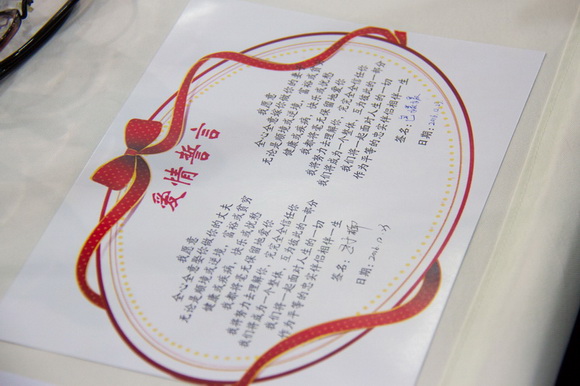 爱情誓言
我愿意
全心全意娶你做你的丈夫
无论是顺境或逆境，富裕或贫穷
健康或疾病，快乐或忧愁
我都将毫无保留地爱你
我将努力去理解你，完完全全信任你
我们将成为一个整体，互为彼此的一部分
我们将一起面对人生的一切
作为平等的忠实伴侣相伴一生
签名：
日期：
我愿意
全心全意嫁你做你的妻
无论是顺境或逆境，富裕或贫穷
健康或疾病，快乐或忧愁
我都将毫无保留地爱你
我将努力去理解你，完完全全信任你
我们将成为一个整体，互为彼此的一部分
我们将一起面对人生的一切
作为平等的忠实伴侣相伴一生
签名：
日期：